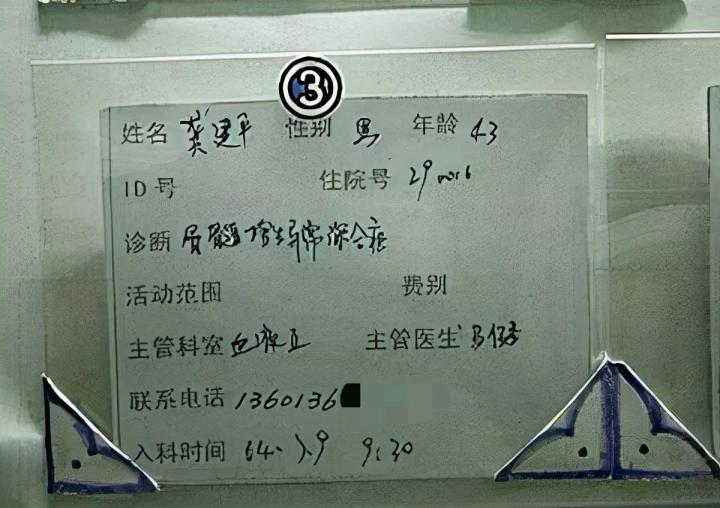 3
姓名 龚建平 性别 男 年龄 43
ID号 住院号 29
诊断 骨髓增生异常综合症
活动范围 费别
主管科室 主管医生
联系电话 1360136
入科时间 04. 9:30